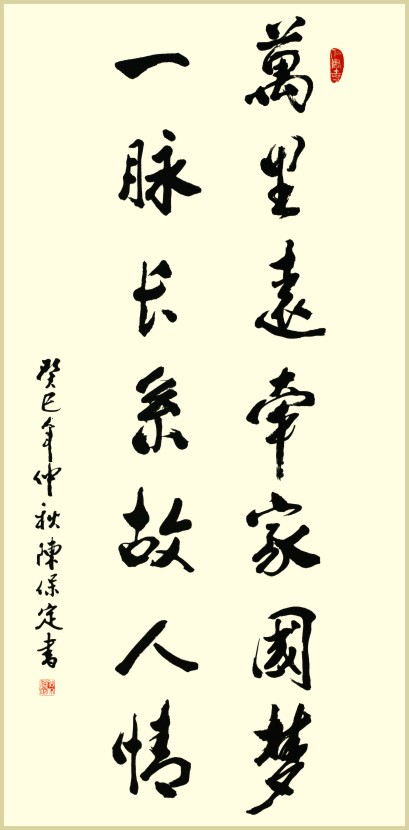 萬里遠牽家國梦
一脉长系故人情
癸巳年仲秋陳保定書